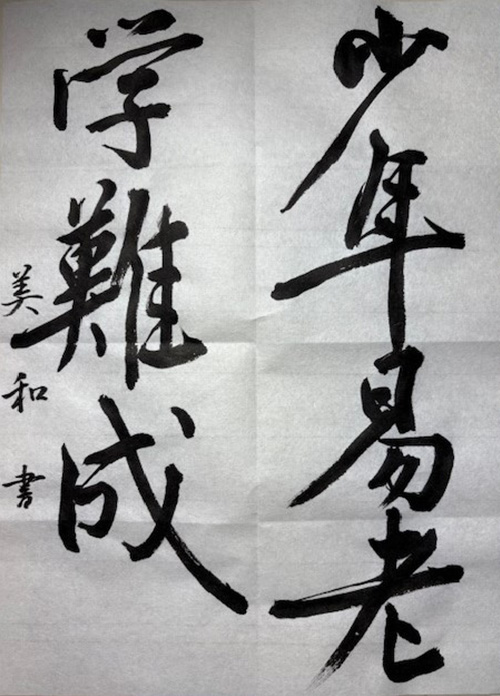 少年易老
学難成
美和書